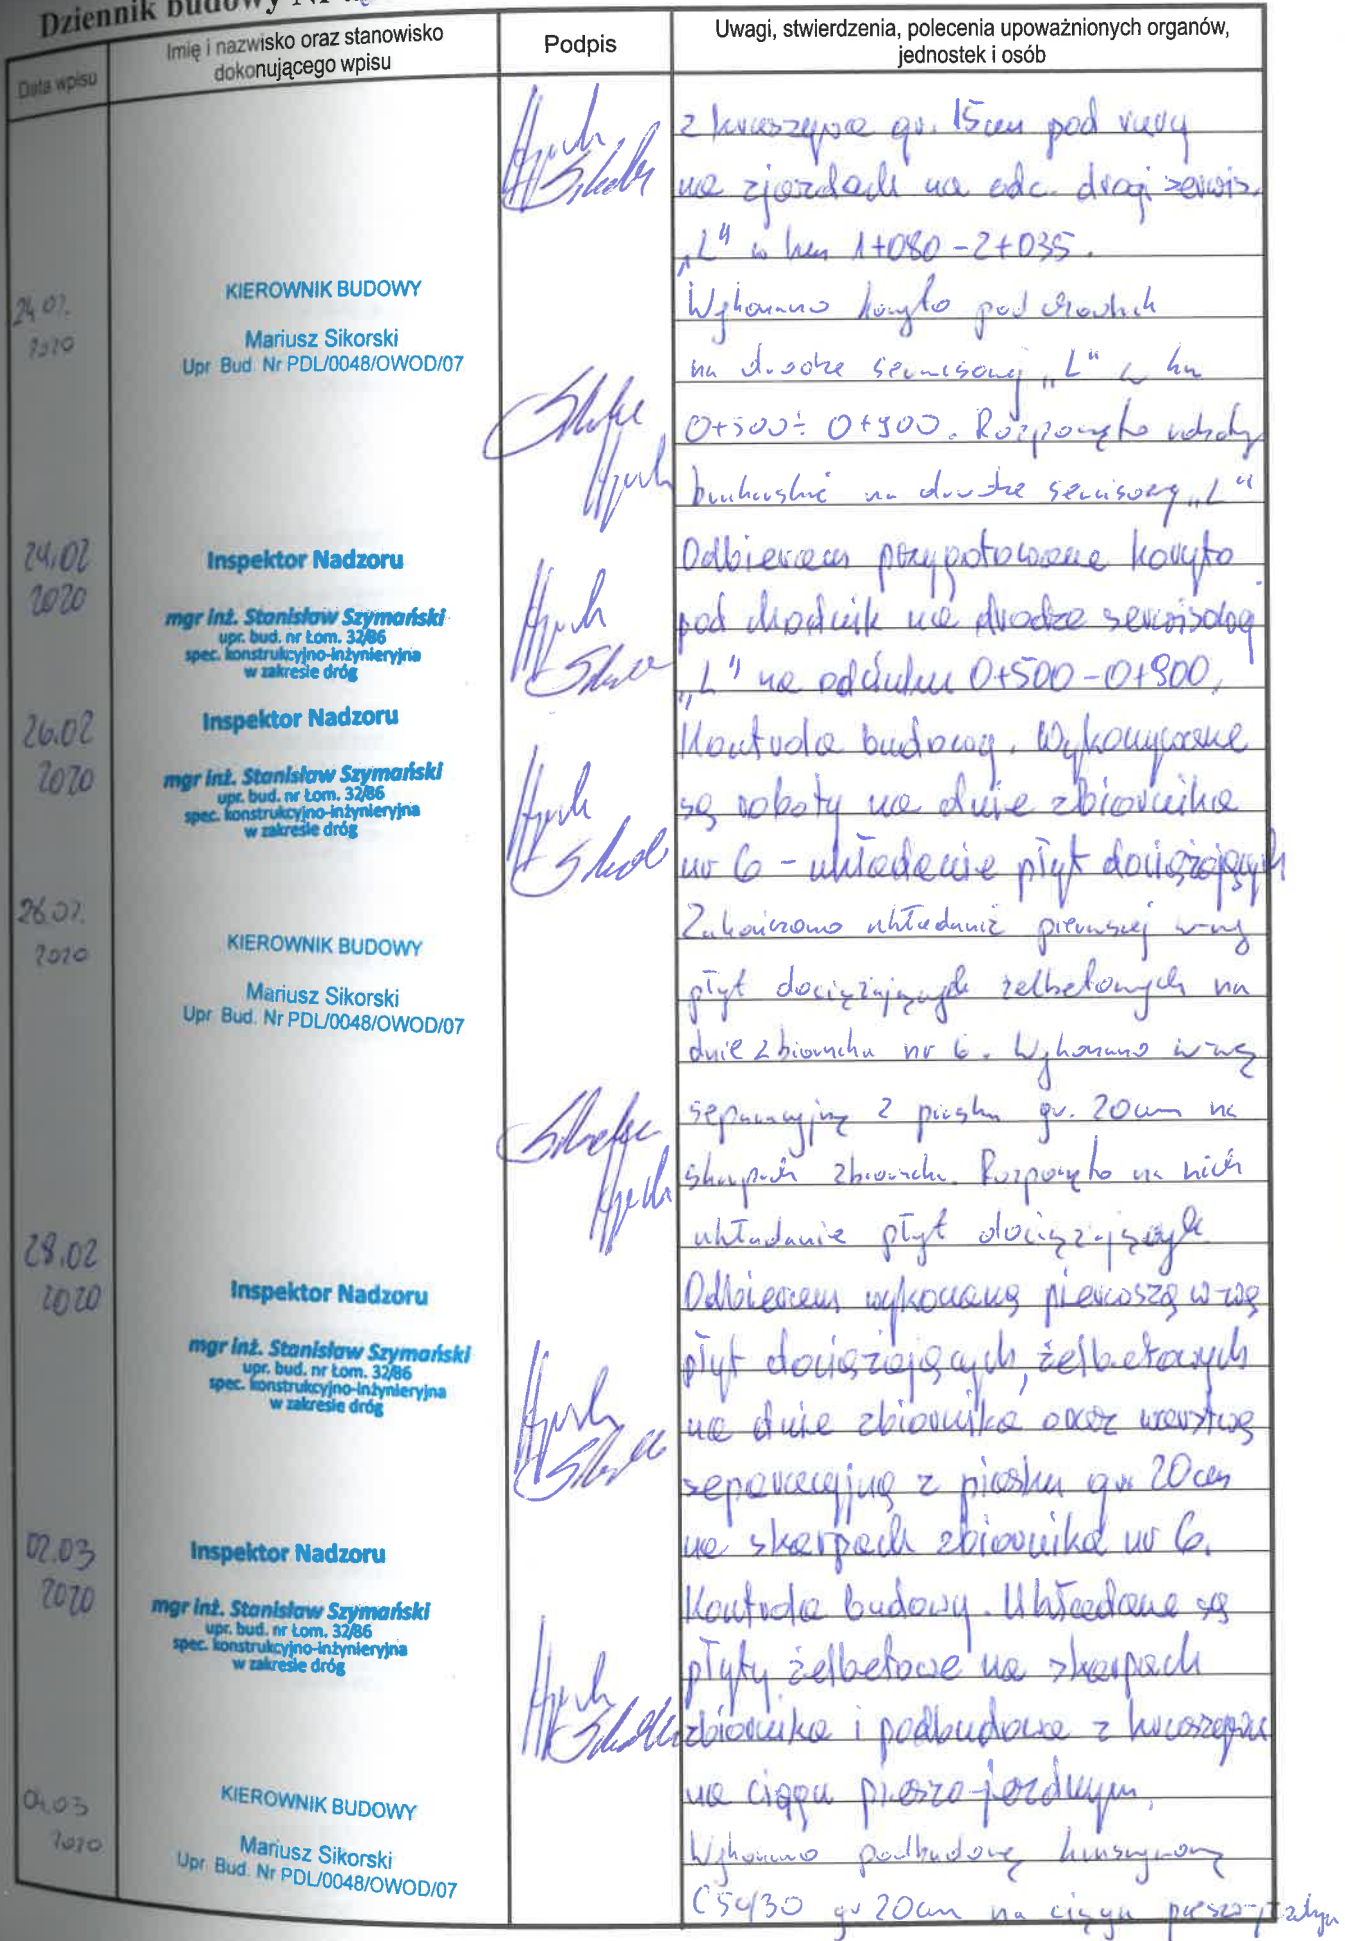 Dziennik budowy Nr
Data wpisu
Imię i nazwisko oraz stanowisko
dokonującego wpisu
Podpis
Uwagi, stwierdzenia, polecenia upoważnionych organów,
jednostek i osób
z kruszywa gr. 15cm pod rury
na zjazdach na odc. drogi serwis.
„L" w km 1+080-2+035.
24.02.
2020
KIEROWNIK BUDOWY
Mariusz Sikorski
Upr Bud. Nr PDL/0048/OWOD/07
Wykonano koryto pod chodnik
na drodze serwisowej „L" w km
0+500÷0+900. Rozpoczęto roboty
brukarskie na drodze serwisowej „L"
24.02
2020
Inspektor Nadzoru
mgr inż. Stanisław Szymański
upr. bud. nr Łom. 32/86
spec. konstrukcyjno-inżynieryjna
w zakresie dróg
Odbieram przygotowane koryto
pod chodnik na drodze serwisowej
„L" na odcinku 0+500-0+900.
26.02
2020
Inspektor Nadzoru
mgr inż. Stanisław Szymański
upr. bud. nr Łom. 32/86
spec. konstrukcyjno-inżynieryjna
w zakresie dróg
Kontrola budowy. Wykonywane
są roboty na dnie zbiornika
nr 6 - układanie płyt dociążających
28.02.
2020
KIEROWNIK BUDOWY
Mariusz Sikorski
Upr Bud. Nr PDL/0048/OWOD/07
Zakończono układanie pierwszej w-wy
płyt dociążających żelbetowych na
dnie zbiornika nr 6. Wykonano w-wę
separacyjną z piasku gr. 20cm na
skarpach zbiornika. Rozpoczęto na nich
układanie płyt dociążających
28.02
2020
Inspektor Nadzoru
mgr inż. Stanisław Szymański
upr. bud. nr Łom. 32/86
spec. konstrukcyjno-inżynieryjna
w zakresie dróg
Odbieram wykonaną pierwszą w-wę
płyt dociążających, żelbetowych
na dnie zbiornika oraz warstwę
separacyjną z piasku gr. 20cm
na skarpach zbiornika nr 6.
02.03
2020
Inspektor Nadzoru
mgr inż. Stanisław Szymański
upr. bud. nr Łom. 32/86
spec. konstrukcyjno-inżynieryjna
w zakresie dróg
Kontrola budowy. Układane są
płyty żelbetowe na skarpach
zbiornika i podbudowa z kruszywa
na ciągu pieszo-jezdnym.
04.03
2020
KIEROWNIK BUDOWY
Mariusz Sikorski
Upr Bud. Nr PDL/0048/OWOD/07
Wykonano podbudowę
C50/30 gr 20cm na ciągu pieszo-jezdnym